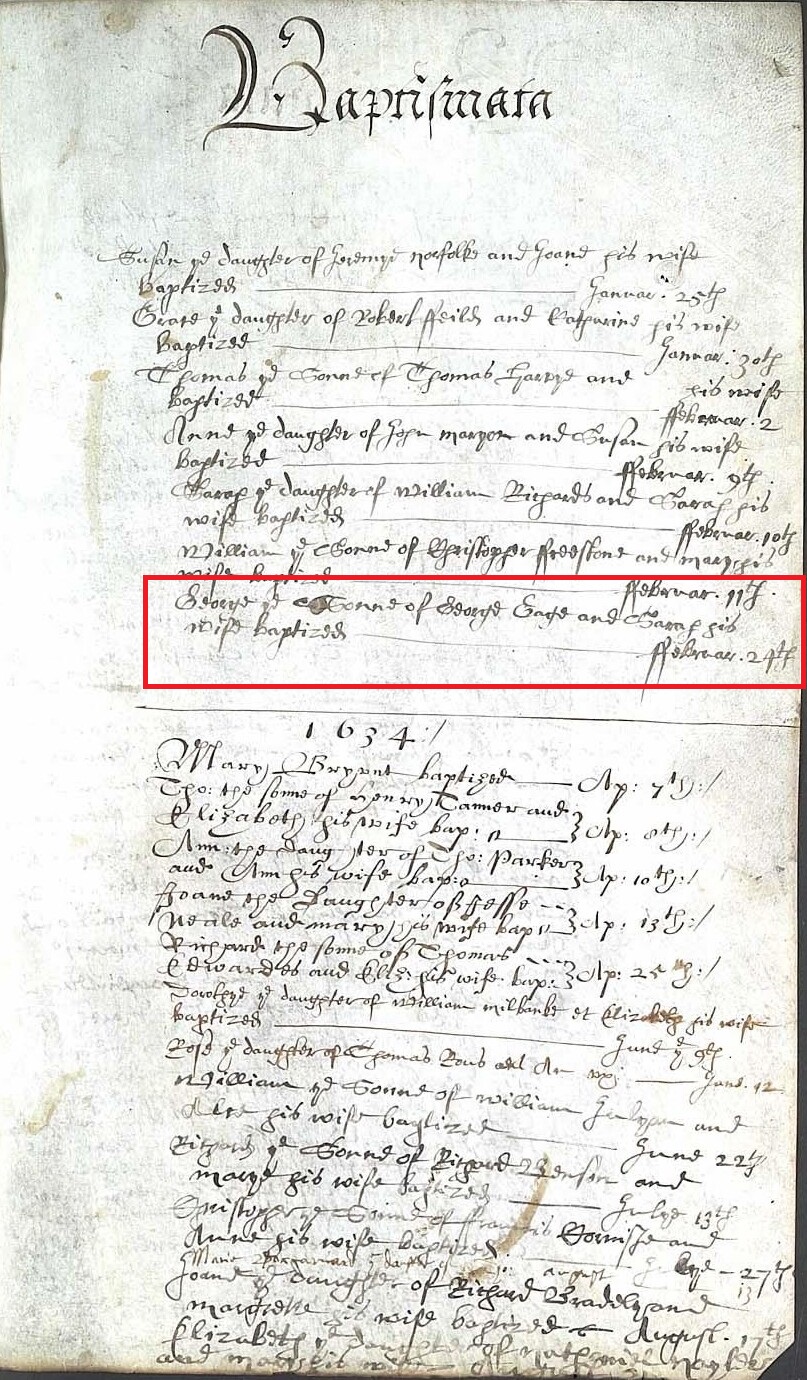 Baptismata
Susan ye daughter of Jeremye Norfolke and Joane his wife
baptized Januar. 25th
Grace ye daughter of Robert ffeild and Katherine his wife
baptized Januar. 30th
Thomas ye Sonne of Thomas Harvye and his wife
baptized ffebruar. 2
Anne ye daughter of John Maryon and Susan his wife
baptized ffebruar. 9th.
Sarah ye daughter of William Richards and Sarah his
wife baptized ffebruar. 10th
William ye Sonne of Christopher ffreestone and Mary his
wife baptized ffebruar. 11th.
George ye Sonne of George Gage and Sarah his
wife baptized ffebruar. 24th
1634:/
Mary Brypnt baptized Ap: 7th:/
Tho: the sonne of Henry Tanner and
Elizabeth his wife bap: Ap: 8th:/
Ann: the Daughter of Tho: Parker
and Ann his wife bap: Ap: 10th:/
Joane the Daughter of Jesse
Neale and Mary his wife bap Ap: 13th:/
Richard the sonne of Thomas
Edwardes and Eliz: his wife bap: Ap: 25th:/
Dorothye ye daughter of William Milbanke et Elizabeth his wife
baptized June ye 9th.
Rose ye daughter of Thomas Rous June. 12
William ye Sonne of William and
Alce his wife baptized June 22th
Richard ye Sonne of Richard Benson and
Marye his wife baptized Julye 13th
Christopher ye Sonne of ffrancis and
Anne his wife baptized 27th
Marie ye daughter of august 13
Joane ye daughter of Richard Bradely and
Margrette his wife baptized August. 17th
Elizabeth ye daughter of Nathaniel Naylder
and his wife